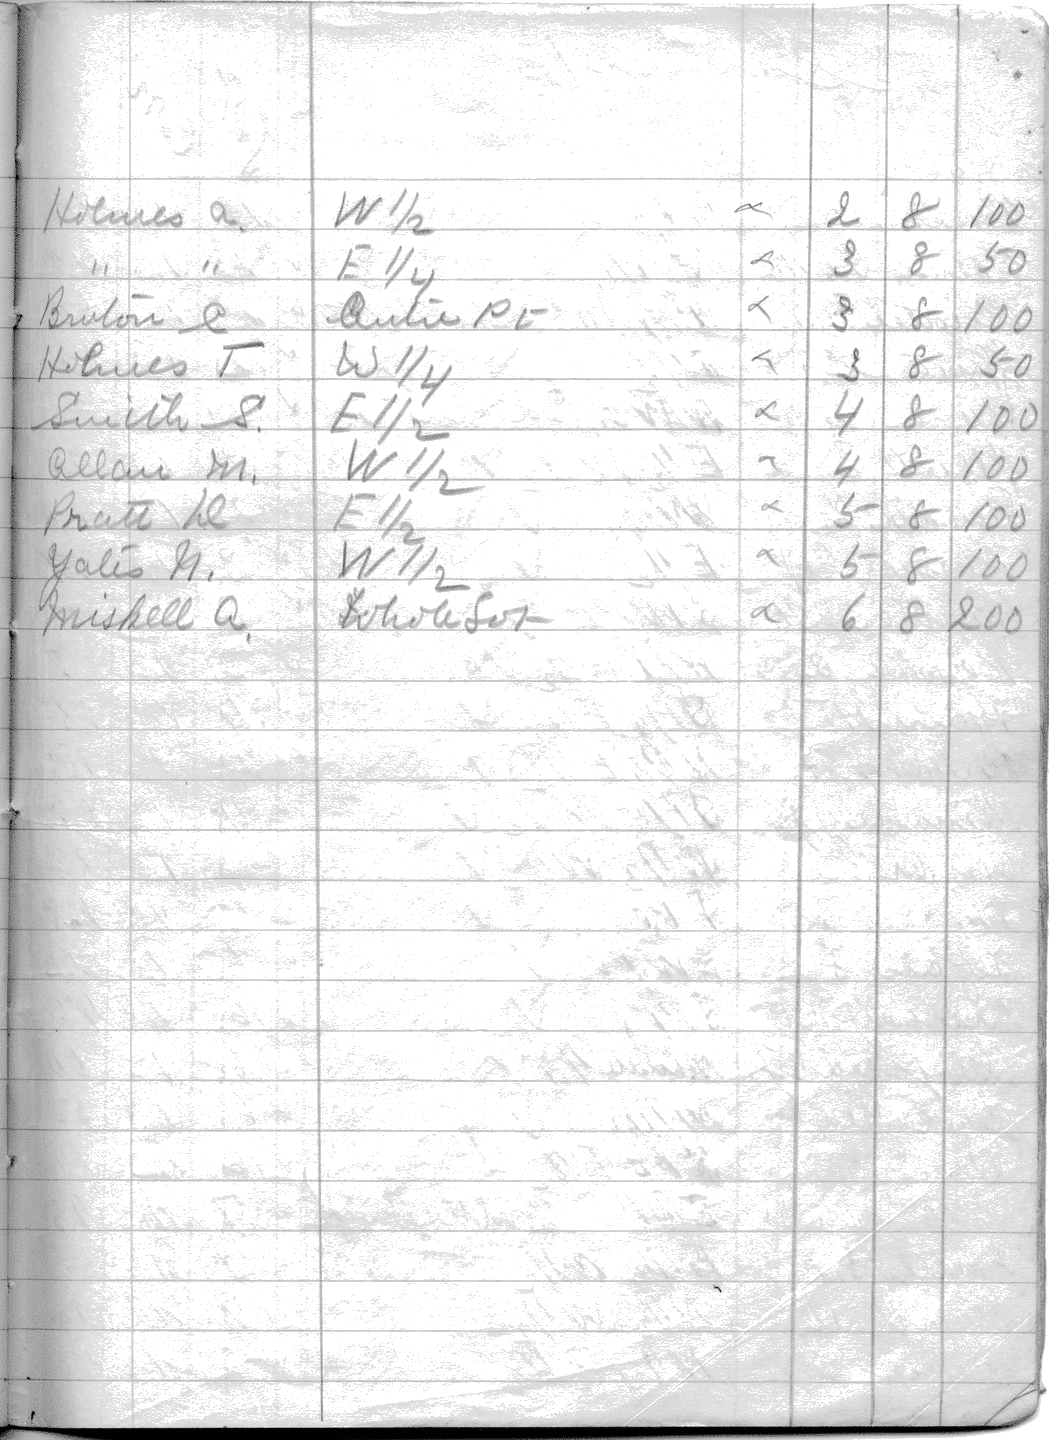 Holmes A. W 1/2 ∝ 2 8 100
" " E 1/4 ∝ 3 8 50
Bruton C Centre Pt ∝ 3 8 100
Holmes T W 1/4 ∝ 3 8 50
Smith S. E 1/2 ∝ 4 8 100
Allan M. W 1/2 ∝ 4 8 100
Pratt E 1/2 ∝ 5 8 100
Yates N. W 1/2 ∝ 5 8 100
Miskell A. Whole Lot ∝ 6 8 200